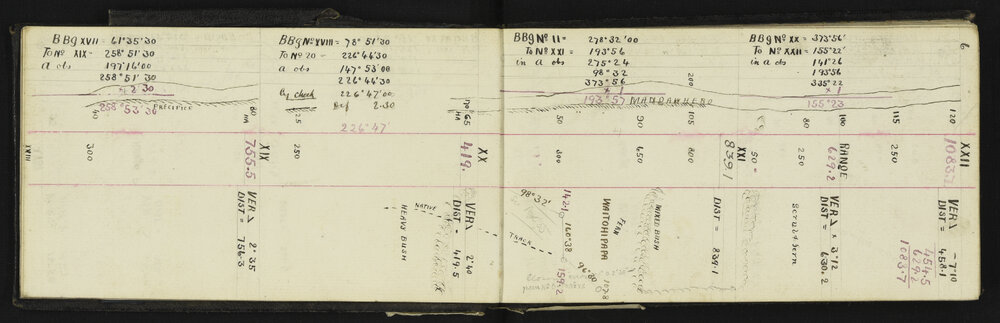 BBg XVII = 61°35'30
To Nº XIX - 258°51'30
a obs 197°16'00
258°51'30
+ 2'30
258°53'30
PRECIPICE
BBg Nº XVIII = 78°51'30
To Nº 20 - 226°44'30
a obs 147°53'00
226°44'30
By check 226°47'00
Def 2-30
226°47'
BBg Nº II = 278°32'00
To Nº XXI 193°56
in a obs 275°24
98°32
373°56
+ 1
193°57
MANGAWHERO
200
BBg Nº XX = 373°56'
To Nº XXII = 155°22'
in a obs 141°26
193°56
335°22
+ 1
155°23
6
80
HA
125
170
65
HA
50
90
105
80
100
115
120
XVIII
300
XIX
755.5
250
XX
419.
300
450
800
XXI
8391
50
250
RANGE
629.2
250
XXII
1083.7
VER∆ 2°35
DIST = 756.3
HEAVY BUSH
NATIVE
TRACK
VER∆ 2°40
DIST - 419.5
98°32'
1421
160°38
159.2
96°80
1078
WAITOHIPAPA
FERN
MIXED BUSH
DIST = 839.1
Scrub & fern
VER∆ + 3°12
DIST = 630.2
VER∆ - 7°10
DIST = 458.1
454.5
629.2
1083.7